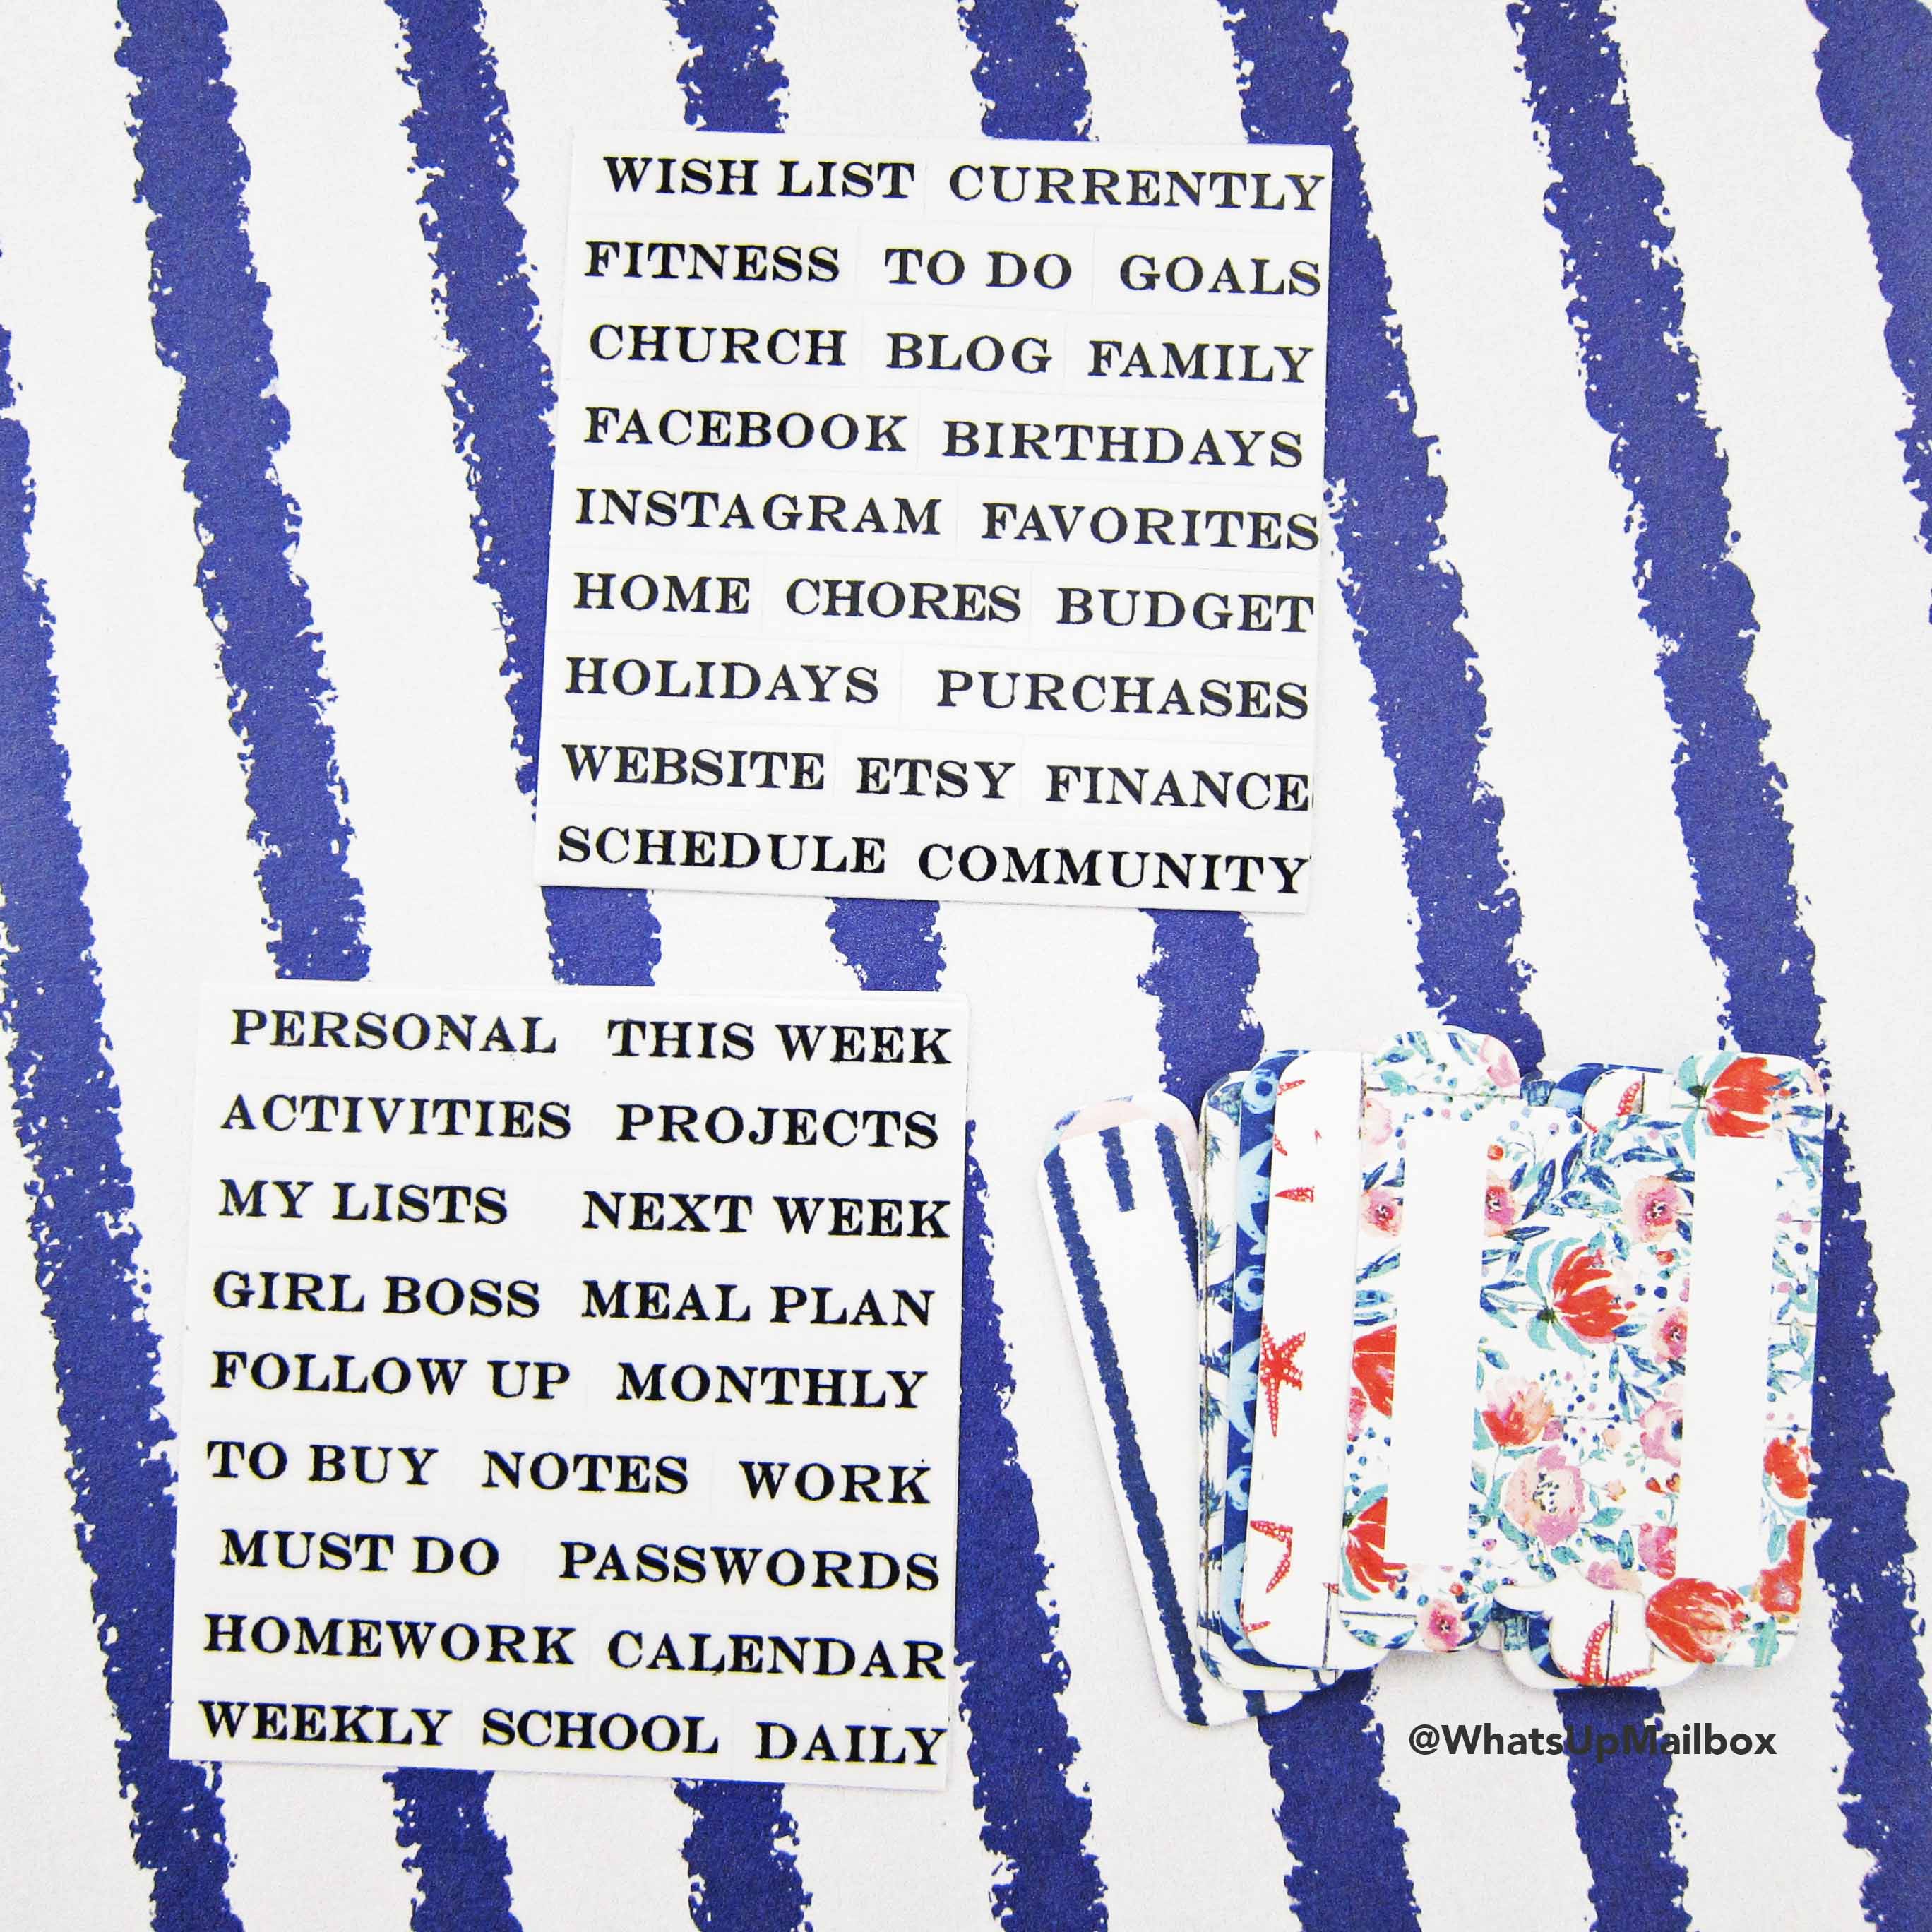 WISH LIST CURRENTLY
FITNESS TO DO GOALS
CHURCH BLOG FAMILY
FACEBOOK BIRTHDAYS
INSTAGRAM FAVORITES
HOME CHORES BUDGET
HOLIDAYS PURCHASES
WEBSITE ETSY FINANCE
SCHEDULE COMMUNITY
PERSONAL THIS WEEK
ACTIVITIES PROJECTS
MY LISTS NEXT WEEK
GIRL BOSS MEAL PLAN
FOLLOW UP MONTHLY
TO BUY NOTES WORK
MUST DO PASSWORDS
HOMEWORK CALENDAR
WEEKLY SCHOOL DAILY
@WhatsUpMailbox